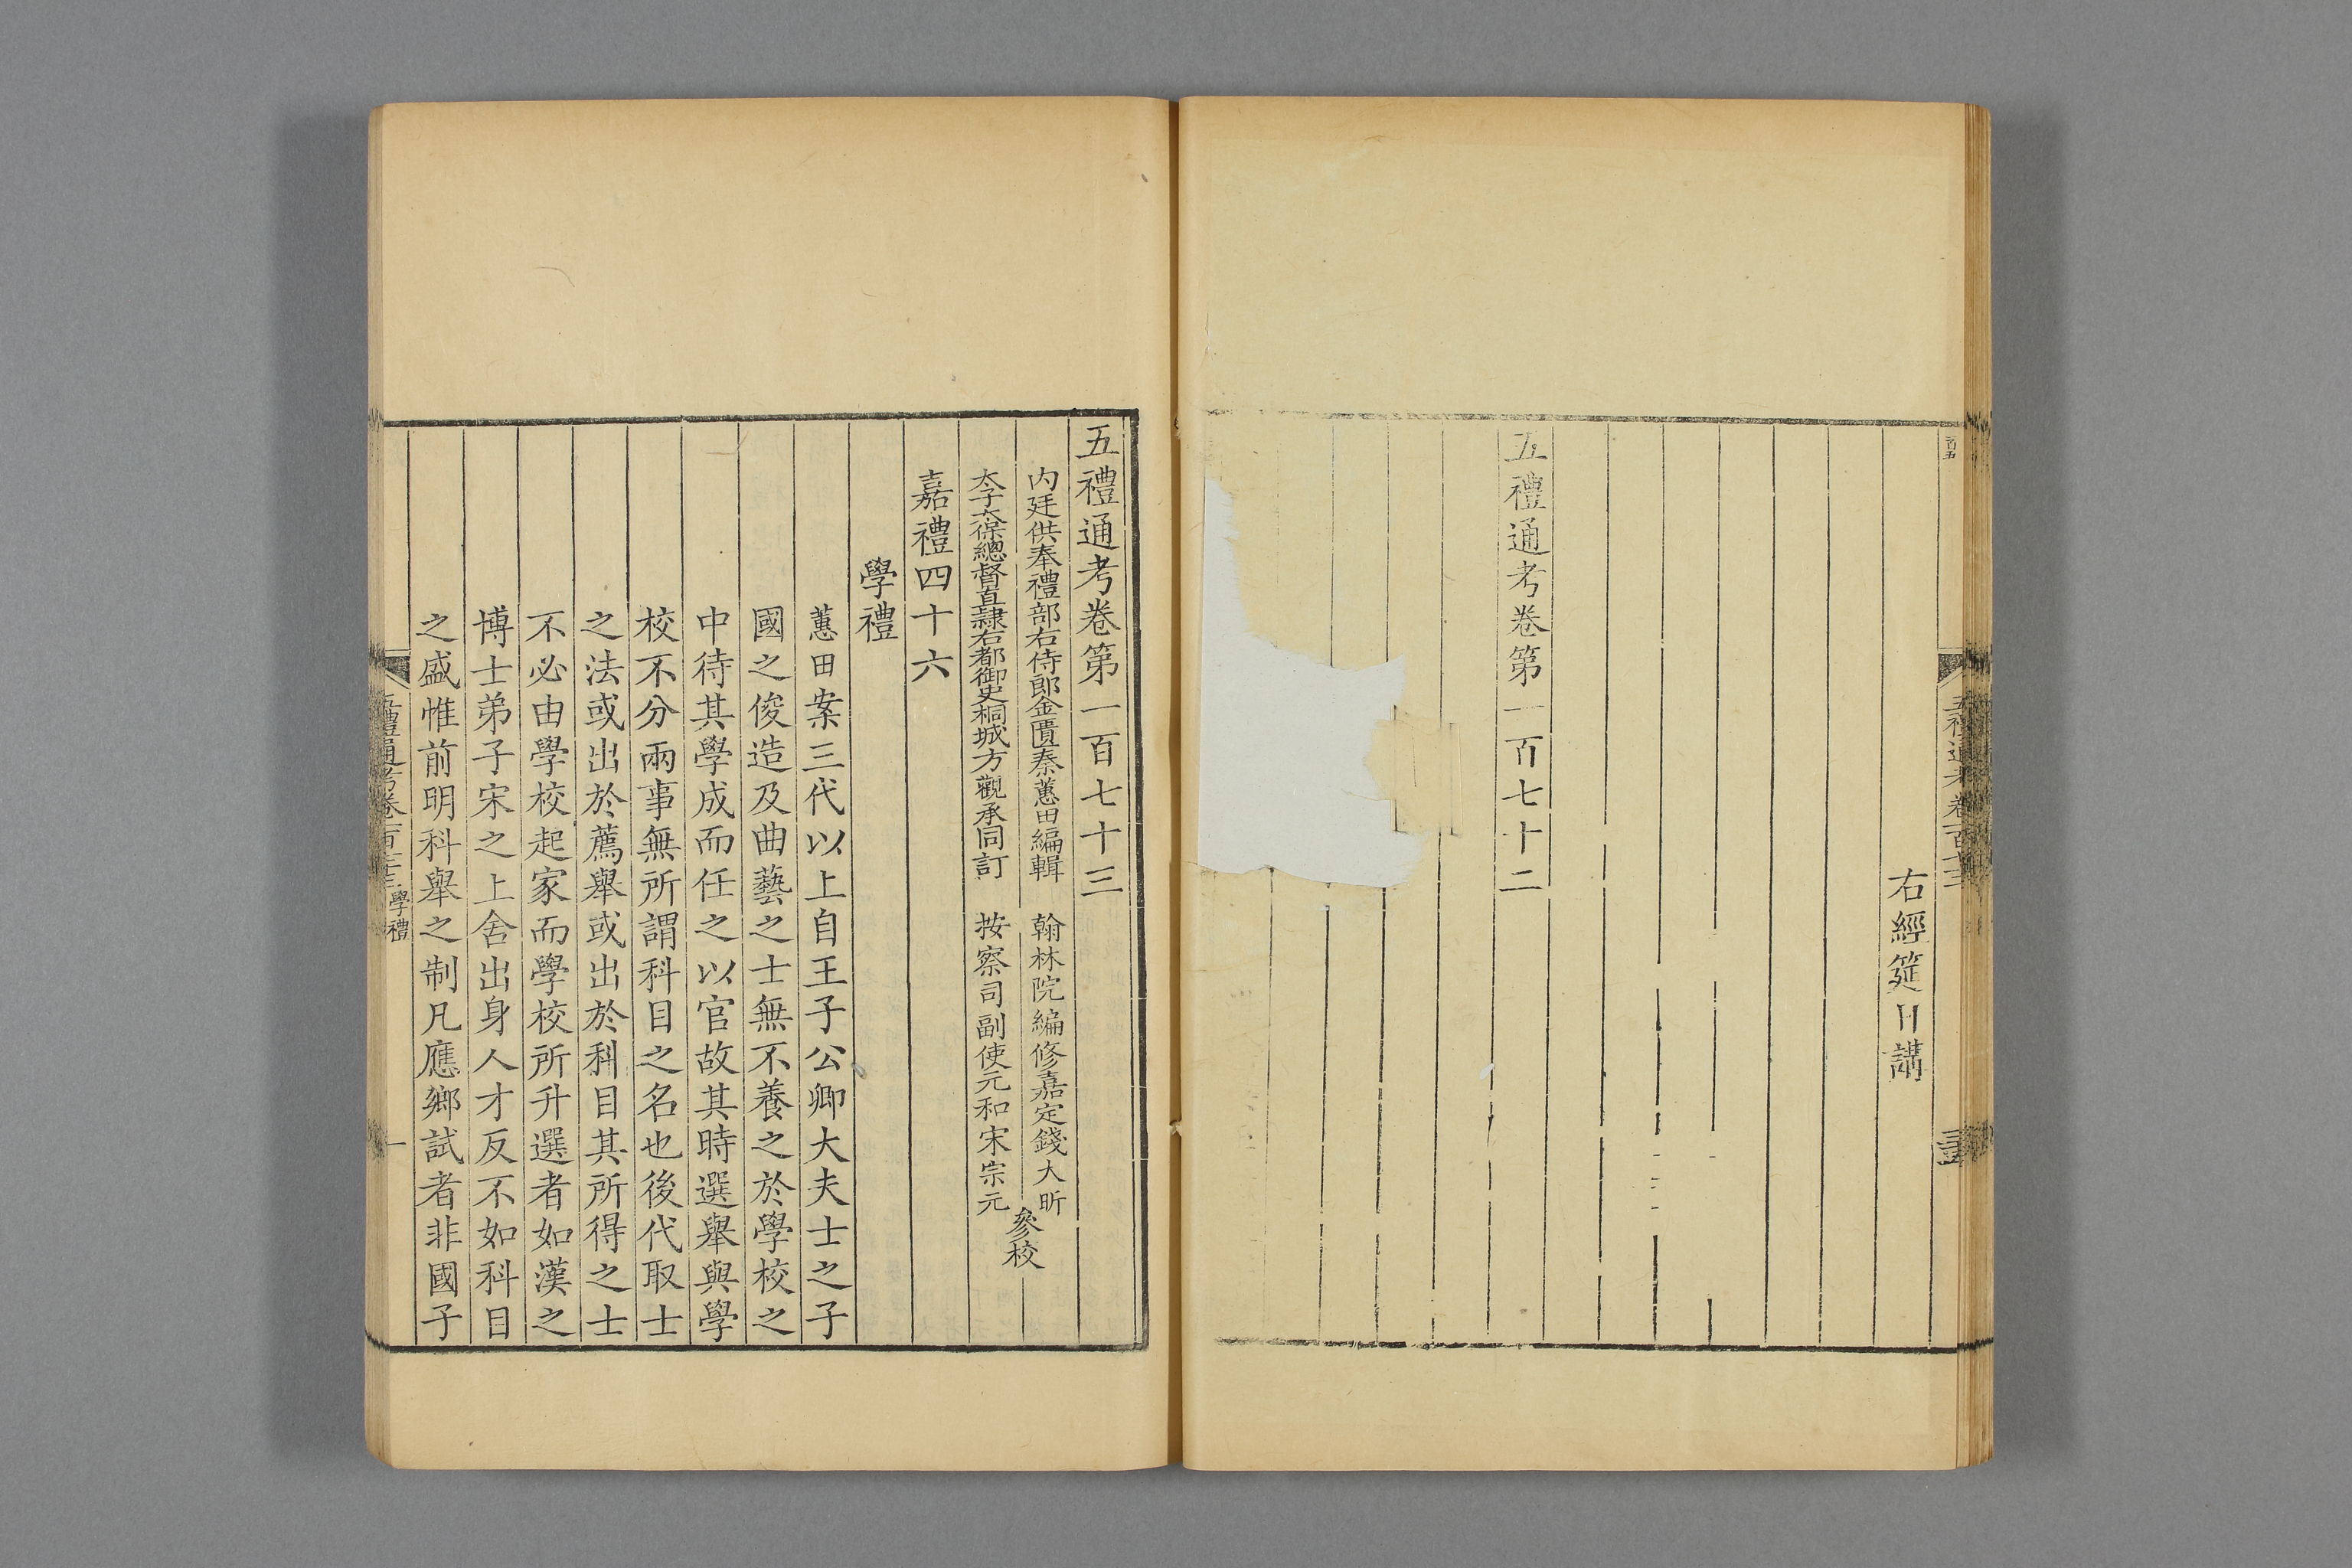 右經筵日講
五禮通考卷第一百七十二
五禮通考卷第一百七十三
内廷供奉禮部右侍郎金匱秦蕙田編輯
太子太保總督直隷右都御史桐城方觀承同訂
翰林院編修嘉定錢大昕
按察司副使元和宋宗元
參校
嘉禮四十六
學禮
蕙田案三代以上自王子公卿大夫士之子
國之俊造及曲藝之士無不養之於學校之
中待其學成而任之以官故其時選舉與學
校不分兩事無所謂科目之名也後代取士
之法或出於薦舉或出於科目其所得之士
不必由學校起家而學校所升選者如漢之
博士弟子宋之上舍出身人才反不如科目
之盛惟前明科舉之制凡應鄉試者非國子
五禮通考卷一百七十三 學禮
一